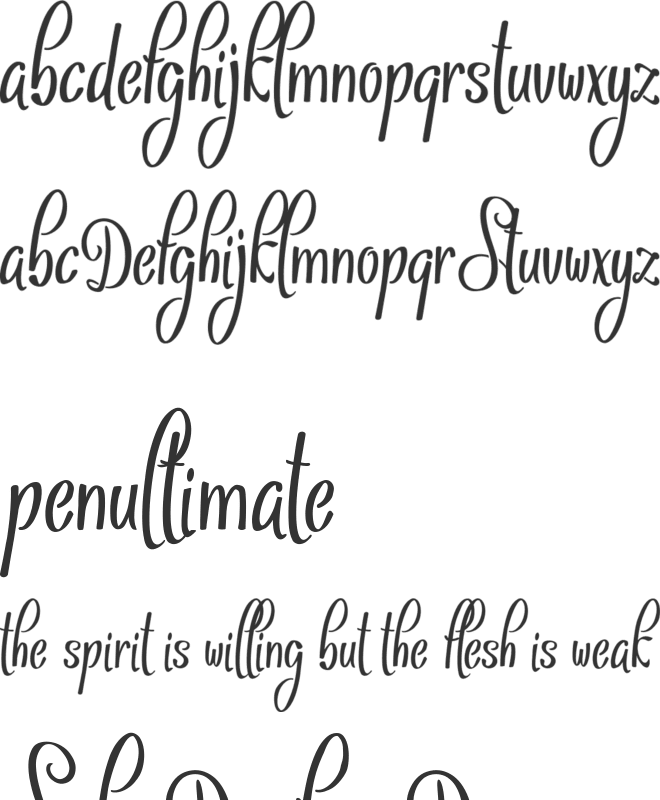 abcdefghijklmnopqrstuvwxyz
abcDefghijklmnopqrStuvwxyz
penultimate
the spirit is willing but the flesh is weak